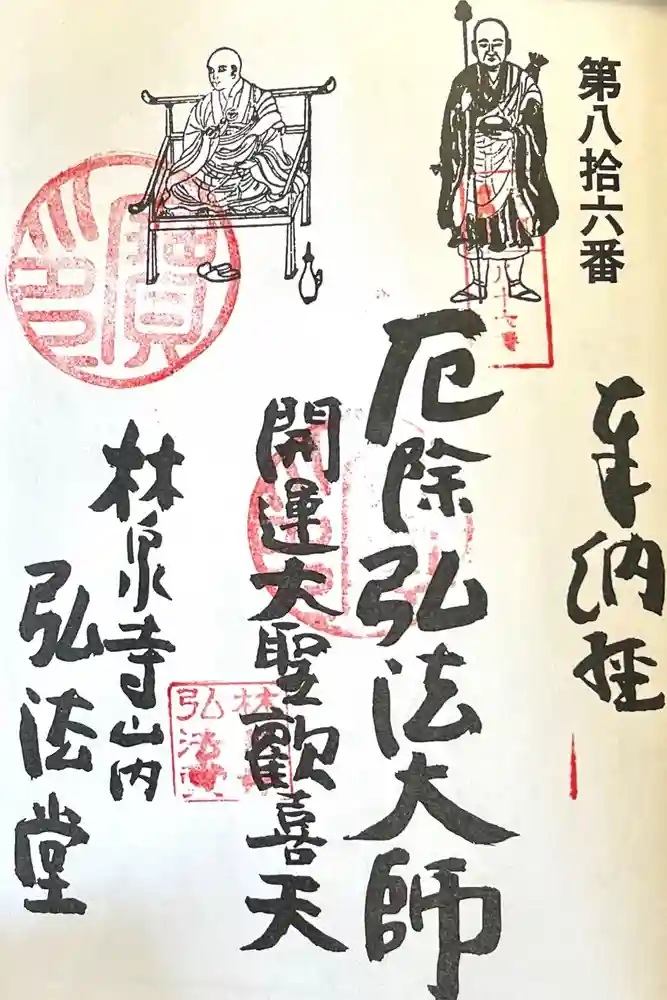 第八拾六番
奉納経
厄除弘法大師
開運大聖歓喜天
林泉寺山内
弘法堂
寳印
弘法堂